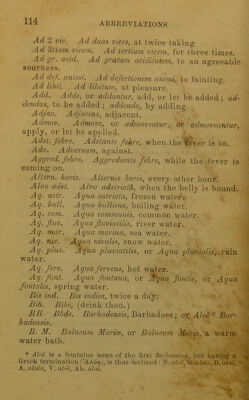 114 ABBREVIATIONS
Ad 2 vic. Ad duas vices, at twice taking.
Ad 3tiam vicem. Ad tertiam vicem, for three times.
Ad gr. acid. Ad gratam aciditatem, to an agreeable
sourness.
Ad def. animi. Ad defectionem animi, to fainting.
Ad libit. Ad libitum, at pleasure.
Add. Adde, or addantur, add, or let be added; ad-
dendus, to be added; addendo, by adding.
Adjac. Adjacens, adjacent.
Admov. Admove, or admoveatur, or admoveantur,
apply, or let be applied.
Adst. febre. Adstante febre, when the fever is on.
Adv. Adversum, against.
Aggred. febre. Aggrediente febre, while the fever is
coming on.
Altern. horis. Alternis horis, every other hour.
Alvo adst. Alvo adstrictâ, when the belly is bound.
Aq. astr. Aqua astricta, frozen water.
Aq. bull. Aqua bulliens, boiling water.
Aq. com. Aqua communis, common water.
Aq. fluv. Aqua fluviatilis, river water.
Aq. mar. Aqua marina, sea water.
Aq. niv. Aqua nivalis, snow water.
Aq. pluv. Aqua pluviatilis, or Aqua pluvialis, rain
water.
Aq. ferv. Aqua fervens, hot water.
Aq. font. Aqua fontana, or Aqua fontis, or Aqua
fontalis, spring water.
Bis ind. Bis indies, twice a day.
Bib. Bibe, (drink thou.)
BB. Bbds. Barbadensis, Barbadoes; or Aloë* Bar-
badensis.
B. M. Balneum Mariæ, or Balneum Maris, a warm
water bath.
* Aloë is a feminine noun of the first declension, but having a
Greek termination (Ἀλόη), is thus declined: N. aloë, G. aloës, D. aloë,
A. aloën, V. aloë, Ab. aloë.